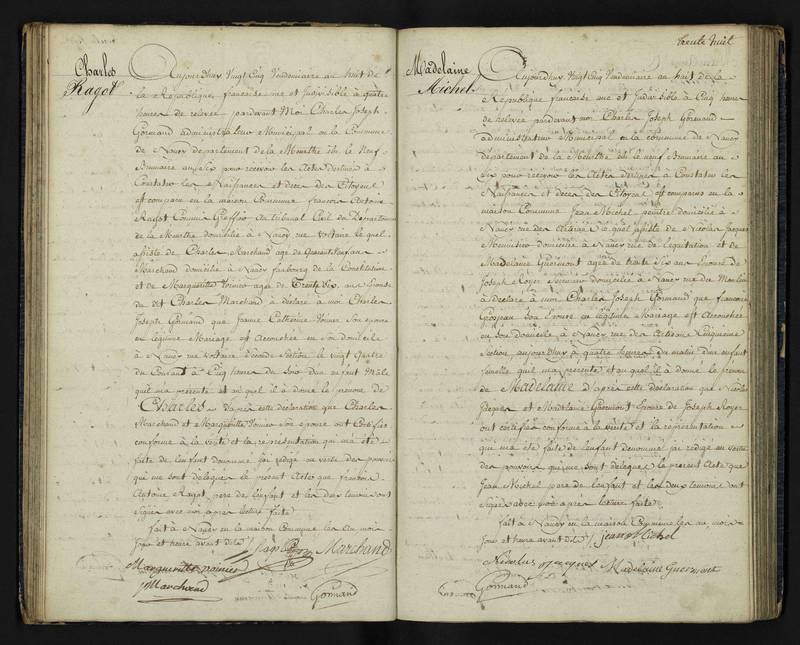 Charles
Ragot
Aujourdhuy Vingt Cinq Vendemiaire an huit de
la Republique francaise une et Indivisible à quatre
heures de relevee pardevant Moi Charles Joseph
Gormand administrateur Municipal en la Commune
de Nancy departement de la Meurthe élu le neuf
Brumaire an Six pour recevoir les Actes destinés à
Constater les Naissances et deces des Citoyens
est comparu en la maison Commune francois Antoine
Ragot Commis Greffier au tribunal Civil du Departement
de la Meurthe domicilié à Nancy rue Voltaire le quel
assisté de Charles Marchand agé de
Marchand domicilié à Nancy faubourg de la Constitution
et de Marguerite agée de Trente Six ans Epouse
du dit Charles Marchand à déclaré à moi Charles
Joseph Gormand que Jeanne Catherine son épouse
en légitime Mariage est Accouchée en son domicile
à Nancy rue Voltaire Seconde Section le vingt quatre
du Courant à Cinq heures du Soir d'un enfant Mâle
qu'il m'a présenté et au quel il à donné le prenom de
Charles d'après cette déclaration que Charles
Marchand et Marguerite son épouse ont Certifiée
conforme à la verité et la représentation qui m'a été
faite de l'enfant denommé j'ai rédigé en vertu des pouvoirs
qui me sont délégués le présent Acte que francois
Antoine Ragot père de l'enfant et les deux temoins ont
signés avec moi après lecture faite
fait à Nancy en la maison Commune les an mois
Jour et heure avant dits
Ragot Marchand
Marguerite
Marchand
Gormand
trente huit
Madelaine
Michel
Aujourdhuy Vingt Cinq Vendemiaire an huit de la
Republique francaise une et Indivisible à Cinq heures
de Relevee pardevant moi Charles Joseph Gormand
administrateur Municipal en la commune de Nancy
département de la Meurthe élu le neuf Brumaire an
Six pour recevoir les Actes destinés à Constater les
Naissances et deces des Citoyens est comparu en la
maison Commune Jean Michel peintre domicilié à
Nancy rue des le quel assisté de Nicolas Jacques
domicilié à Nancy rue de l'équitation et de
Madelaine Guermont agée de trente Six ans Epouse de
Joseph Royer domicilié à Nancy rue du Moulin
à déclaré à moi Charles Joseph Gormand que francoise
son Epouse en légitime Mariage est Accouchée
en son domicile à Nancy rue des Cinquieme
Section aujourdhuy à quatre heures du matin d'un enfant
femelle qu'il m'a présenté et au quel il à donné le prenom
de Madelaine d'après cette déclaration que Nicolas
Jacques et Madelaine Guermont épouse de Joseph Royer
ont certifiée conforme à la verité et la représentation
qui m'a été faite de l'enfant denommé j'ai rédigé en vertu
des pouvoirs qui me sont délégués le présent Acte que
Jean Michel père de l'enfant et les deux temoins ont
signés avec moi après lecture faite
fait à Nancy en la maison Commune les an mois
Jour et heure avant dits jean Michel
Nicolas Jacques Madelaine Guermont
Gormand